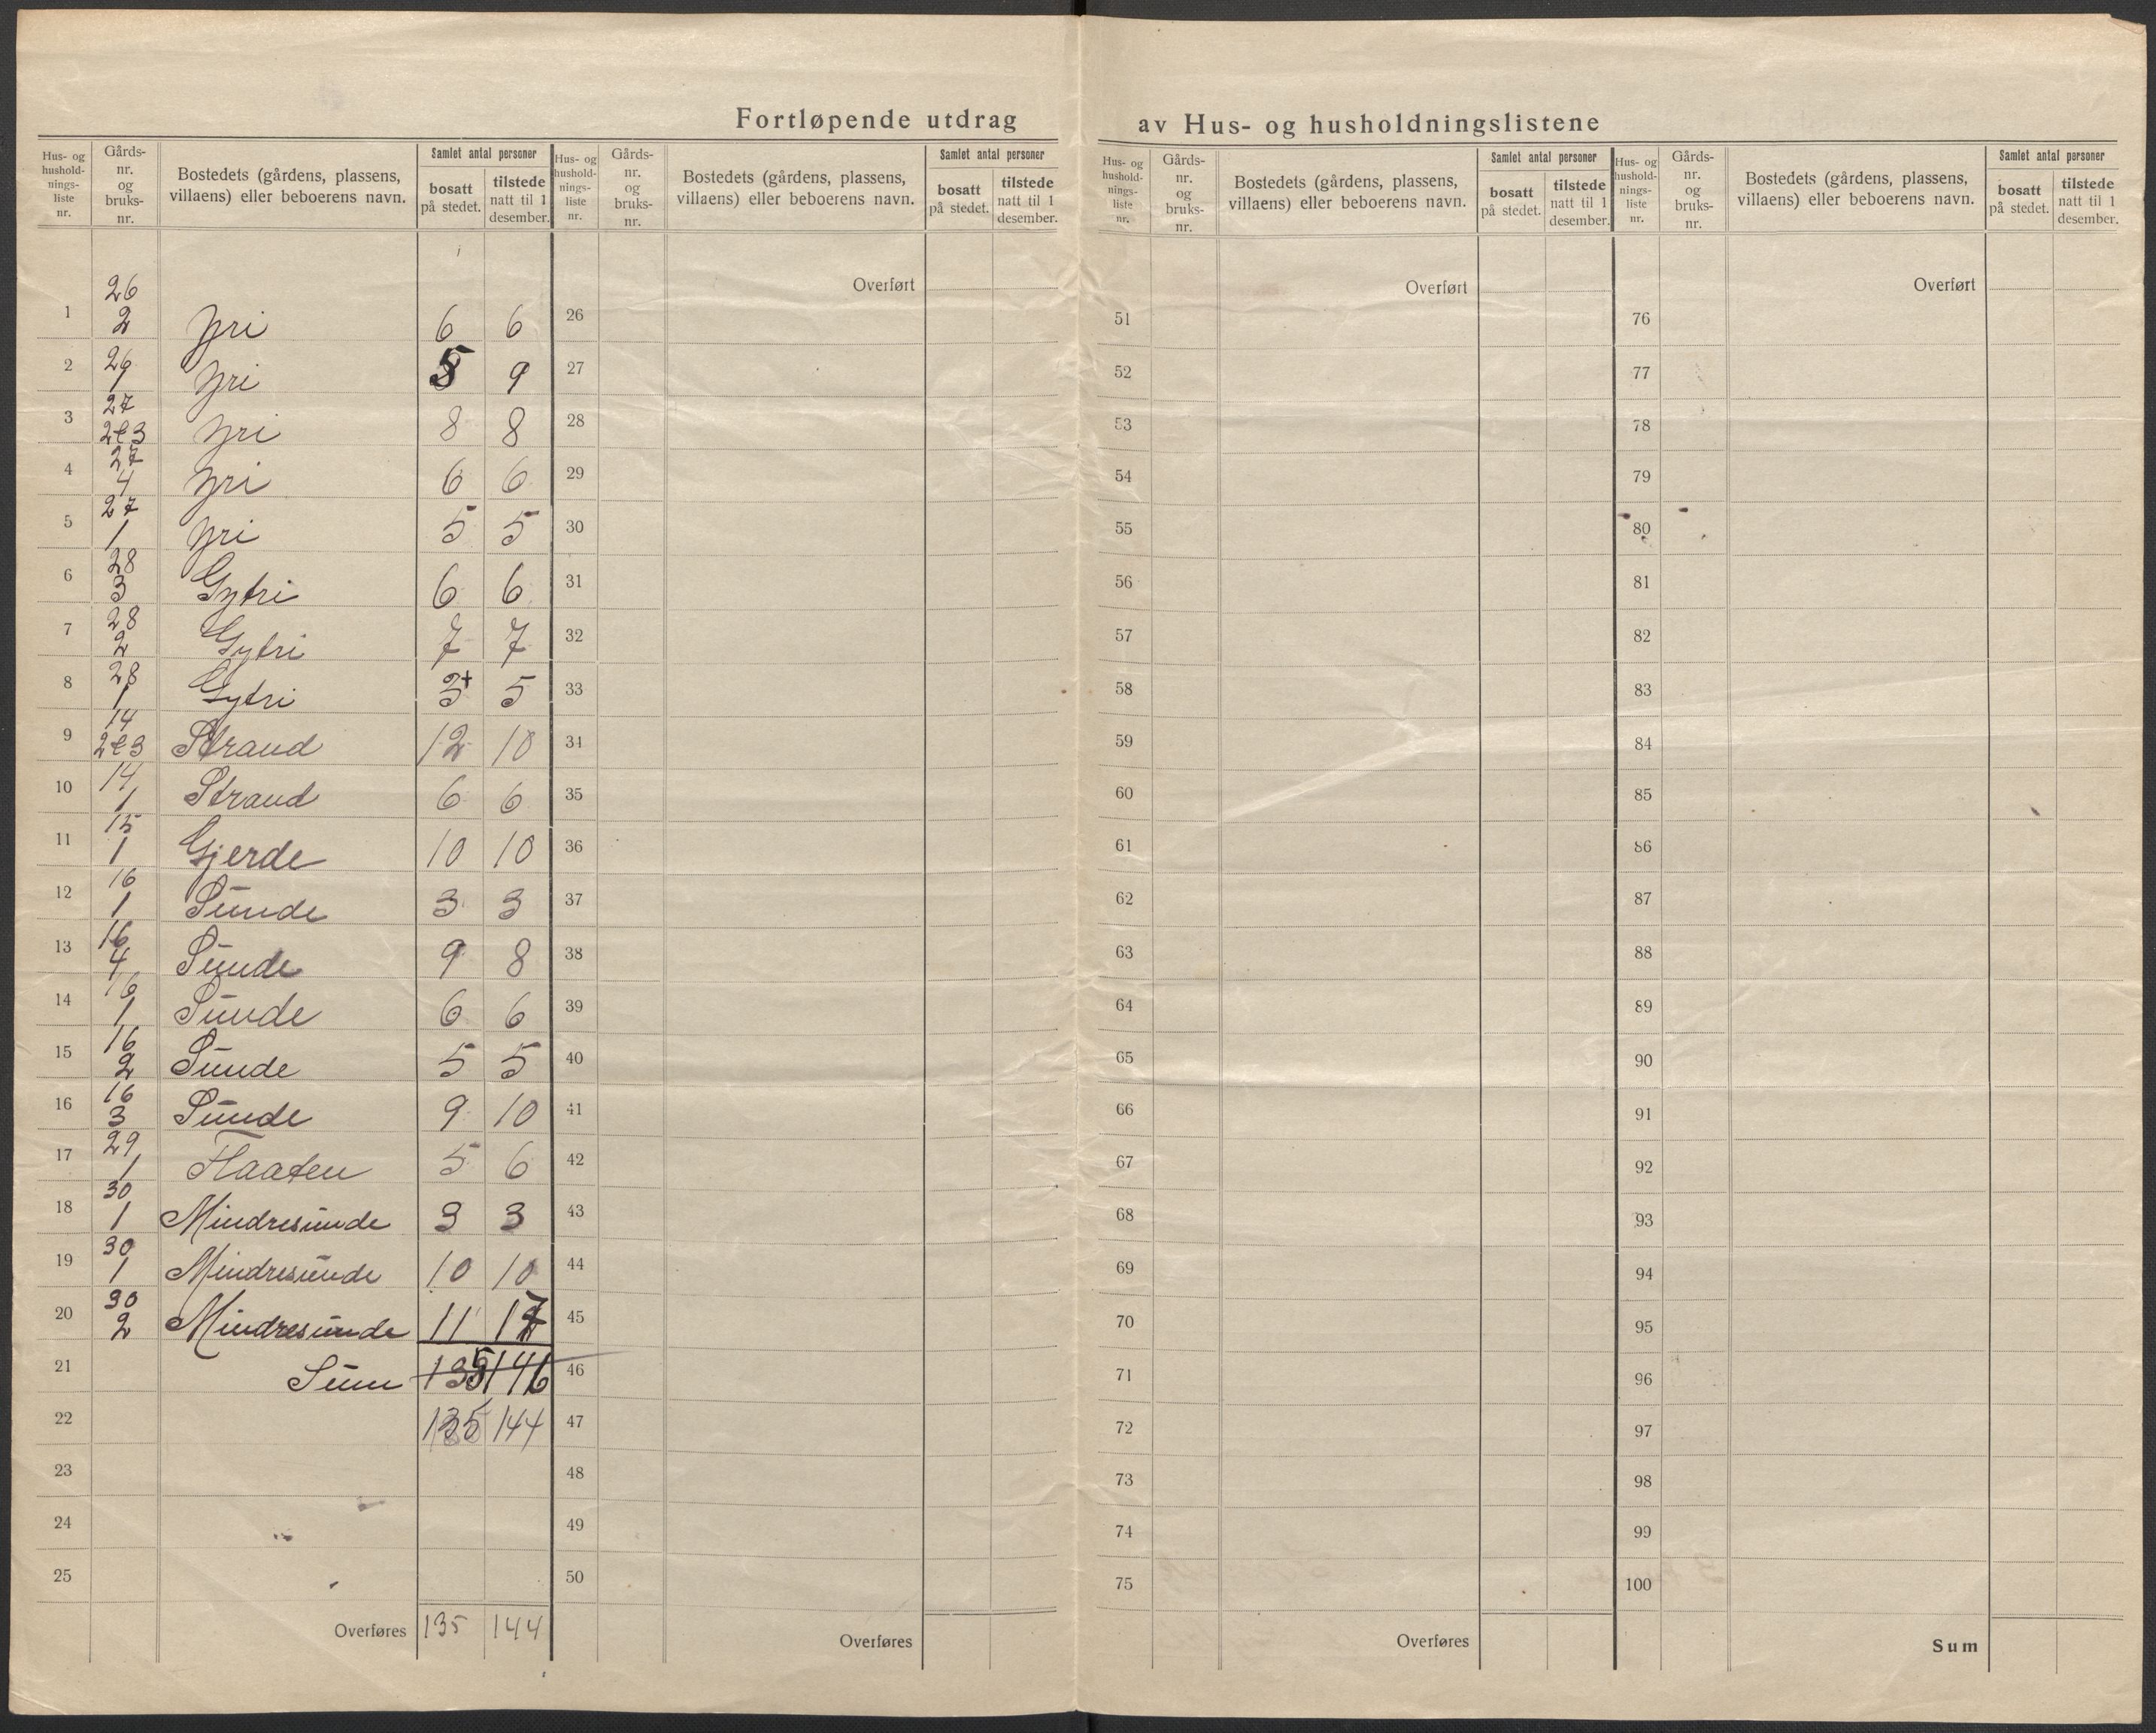 Fortløpende utdrag av Hus- og husholdningslistene
Hus- og hushold-nings-liste nr. | Gårds-nr. og bruks-nr. | Bostedets (gårdens, plassens, villaens) eller beboerens navn. | Samlet antal personer | bosatt på stedet. | tilstede natt til 1 desember.
1 | 26 2 | Yri | 6 | 6
2 | 26 1 | Yri | 5 | 9
3 | 27 2 e 3 | Yri | 8 | 8
4 | 27 4 | Yri | 6 | 6
5 | 27 1 | Yri | 5 | 5
6 | 28 3 | Gytri | 6 | 6
7 | 28 2 | Gytri | 7 | 7
8 | 28 1 | Gytri | 3+ | 5
9 | 14 2 e 3 | Strand | 12 | 10
10 | 14 1 | Strand | 6 | 6
11 | 15 1 | Gjerde | 10 | 10
12 | 16 1 | Sunde | 3 | 3
13 | 16 4 | Sunde | 9 | 8
14 | 16 1 | Sunde | 6 | 6
15 | 16 2 | Sunde | 5 | 5
16 | 16 3 | Sunde | 9 | 10
17 | 29 1 | Flaaten | 5 | 6
18 | 30 1 | Mindresunde | 3 | 3
19 | 30 1 | Mindresunde | 10 | 10
20 | 30 2 | Mindresunde | 11 | 17
21 | Sum | 135 | 146
22 | 135 | 144
23
24
25
Overføres | 135 | 144
Hus- og hushold-nings-liste nr. | Gårds-nr. og bruks-nr. | Bostedets (gårdens, plassens, villaens) eller beboerens navn. | Samlet antal personer | bosatt på stedet. | tilstede natt til 1 desember.
Overført
26
27
28
29
30
31
32
33
34
35
36
37
38
39
40
41
42
43
44
45
46
47
48
49
50
Overføres
Hus- og hushold-nings-liste nr. | Gårds-nr. og bruks-nr. | Bostedets (gårdens, plassens, villaens) eller beboerens navn. | Samlet antal personer | bosatt på stedet. | tilstede natt til 1 desember.
Overført
51
52
53
54
55
56
57
58
59
60
61
62
63
64
65
66
67
68
69
70
71
72
73
74
75
Overføres
Hus- og hushold-nings-liste nr. | Gårds-nr. og bruks-nr. | Bostedets (gårdens, plassens, villaens) eller beboerens navn. | Samlet antal personer | bosatt på stedet. | tilstede natt til 1 desember.
Overført
76
77
78
79
80
81
82
83
84
85
86
87
88
89
90
91
92
93
94
95
96
97
98
99
100
Sum